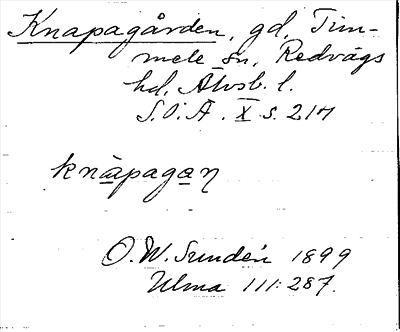 Knapagården, gd, Tim-
mele sn, Redvägs
hd, Älvsb. l.
S.O.Ä. X s. 217
knàpagan
O. W. Sundén 1899
Ulma 111:287.